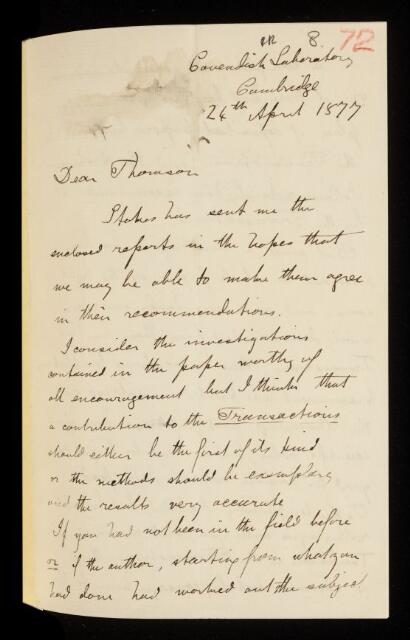 8. 72
Cavendish Laboratory
Cambridge
24th April 1877
Dear Thomson
Stokes has sent me the
enclosed reports in the hopes that
we may be able to make them agree
in their recommendations.
I consider the investigations
contained in the paper worthy of
all encouragement but I think that
a contribution to the Transactions
should either be the first of its kind
or the methods should be exemplary
and the results very accurate
If you had not been in the field before
or if the author, starting from what you
had done had worked out the subject